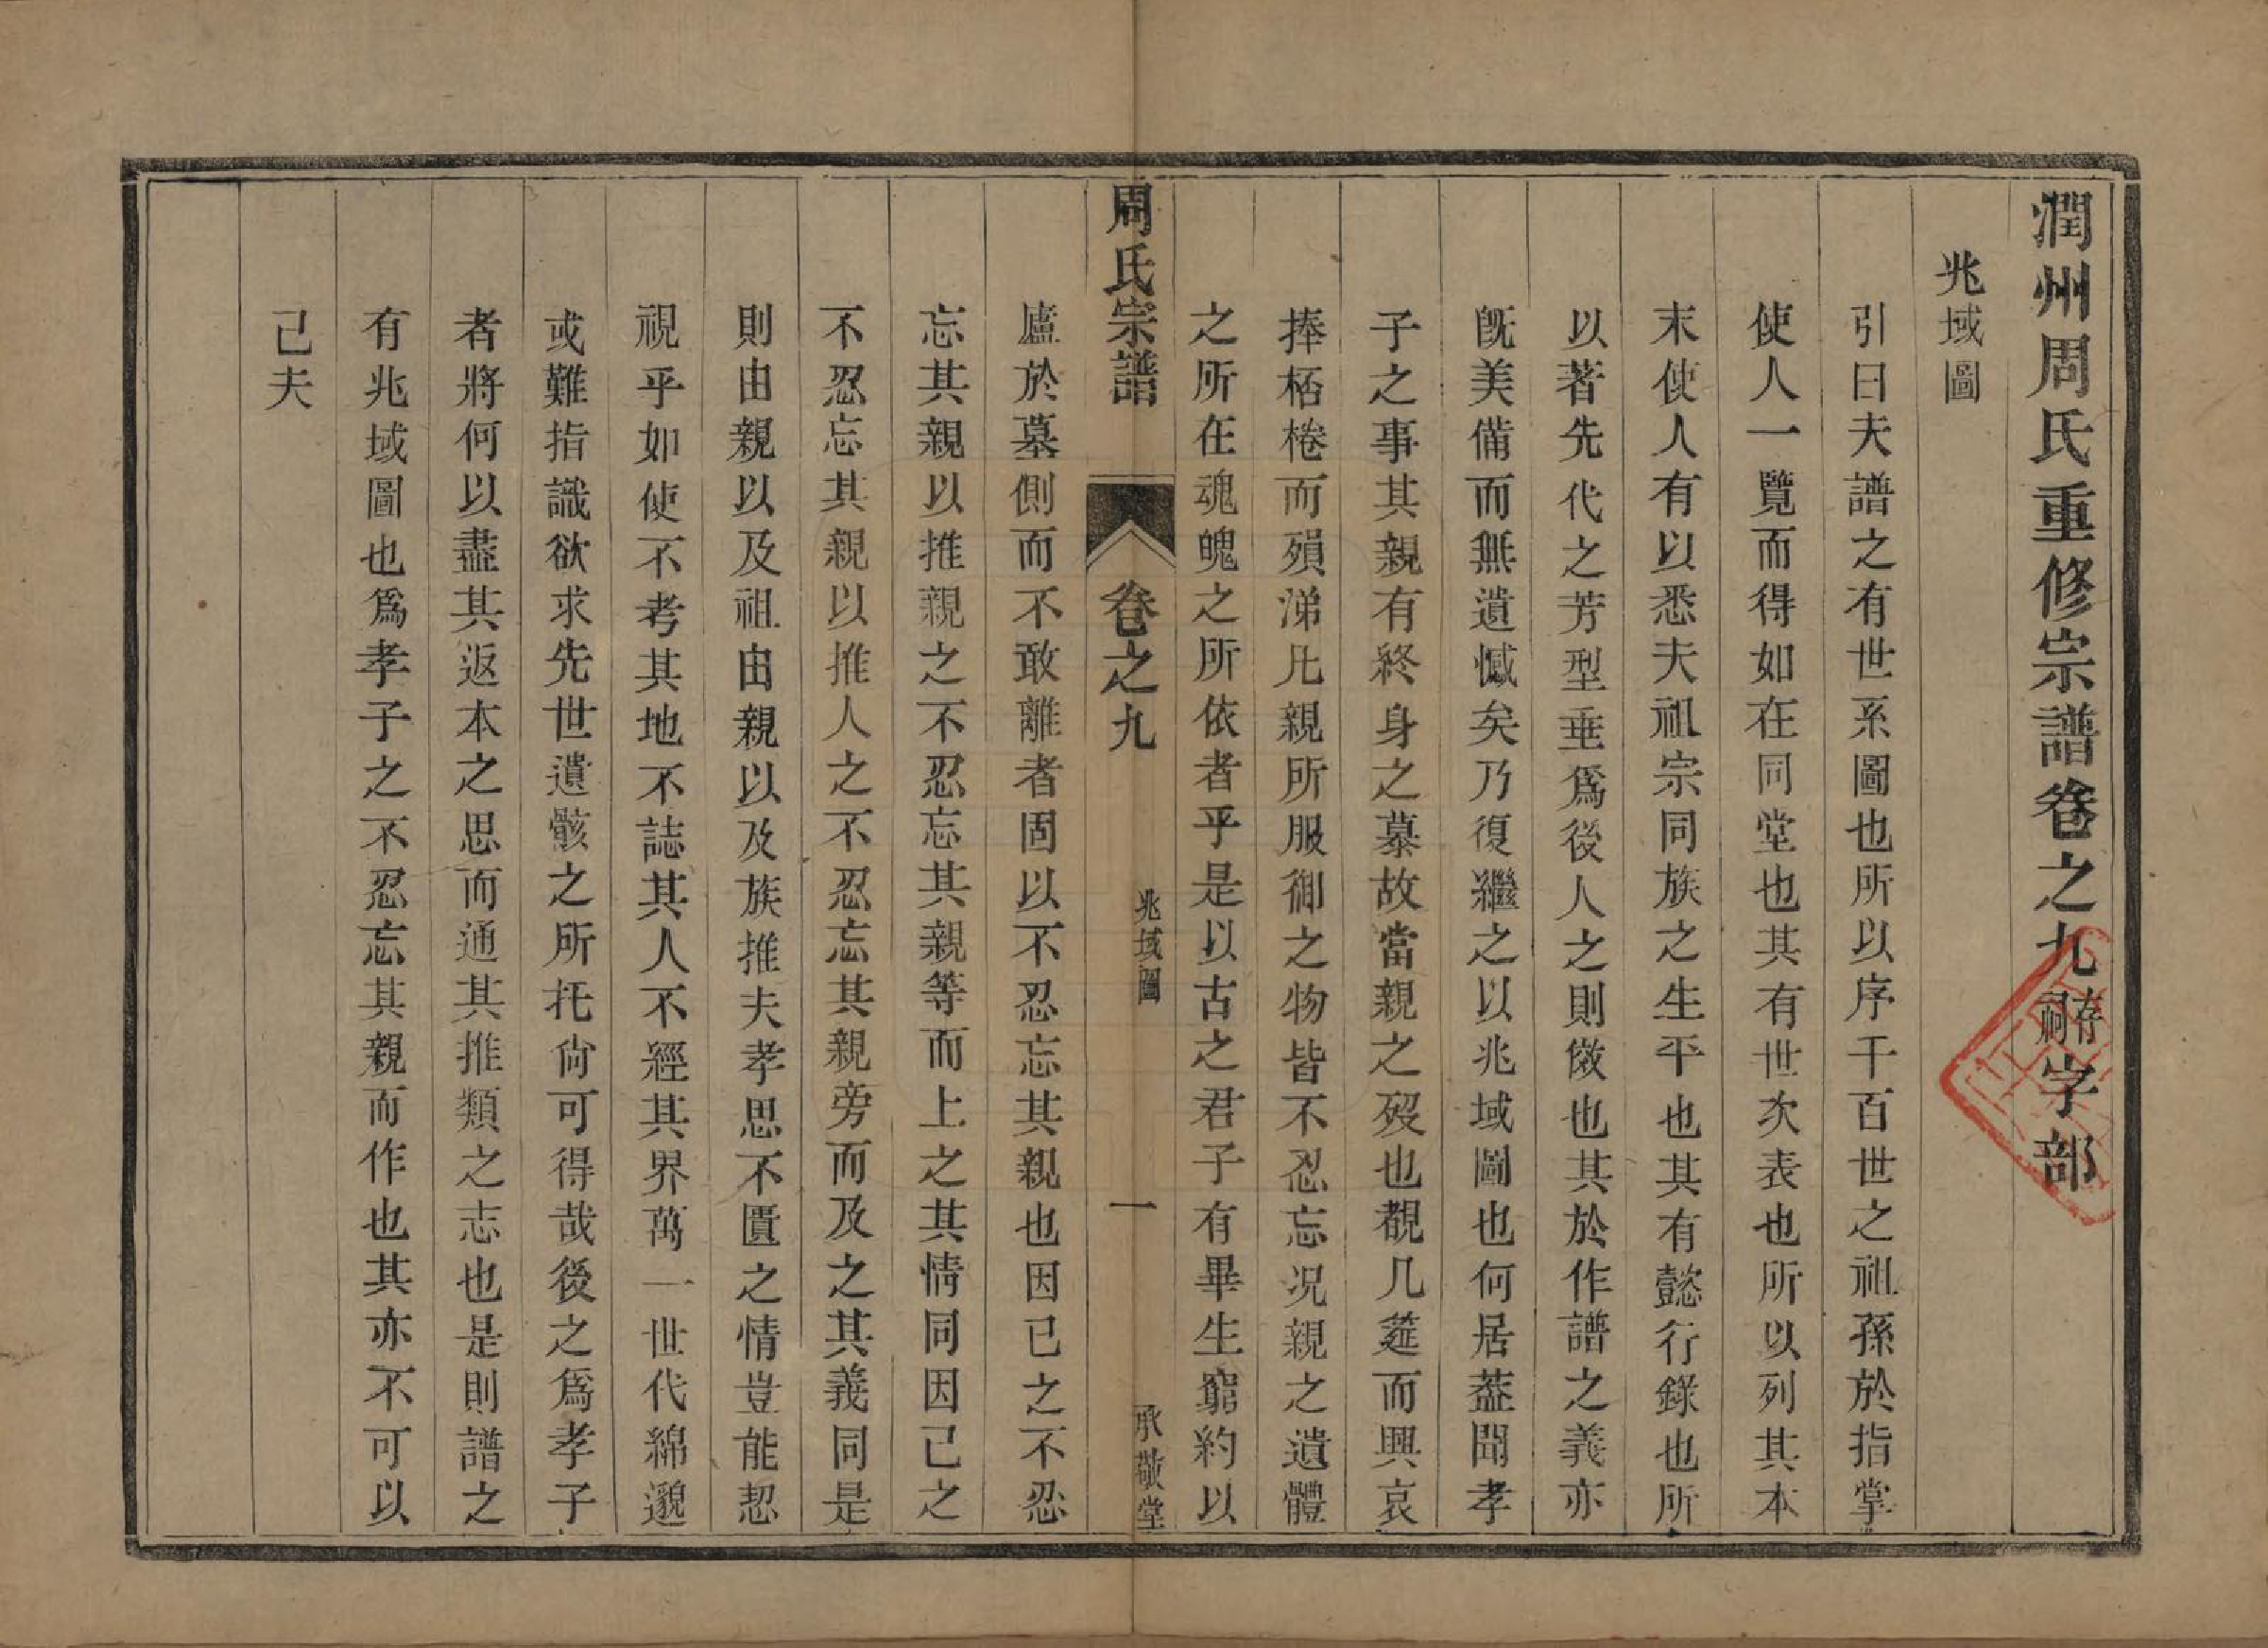 潤州周氏重修宗譜卷之九存祠字部
兆域圖
引曰夫譜之有世系圖也所以序千百世之祖孫於指掌
使人一覽而得如在同堂也其有世次表也所以列其本
末使人有以悉夫祖宗同族之生平也其有懿行錄也所
以著先代之芳型垂爲後人之則傚也其於作譜之義亦
旣美備而無遺憾矣乃復繼之以兆域圖也何居蓋聞孝
子之事其親有終身之慕故當親之歿也覩几筵而興哀
捧桮棬而殞涕凡親所服御之物皆不忍忘况親之遺體
之所在魂魄之所依者乎是以古之君子有畢生窮約以
周氏宗譜
卷之九
兆域圖
一
承敬堂
廬於墓側而不敢離者固以不忍忘其親也因已之不忍
忘其親以推親之不忍忘其親等而上之其情同因已之
不忍忘其親以推人之不忍忘其親旁而及之其義同是
則由親以及祖由親以及族推夫孝思不匱之情豈能恝
視乎如使不考其地不誌其人不經其界萬一世代綿邈
或難指識欲求先世遺骸之所托尙可得哉後之爲孝子
者將何以盡其返本之思而通其推類之志也是則譜之
有兆域圖也爲孝子之不忍忘其親而作也其亦不可以
已夫